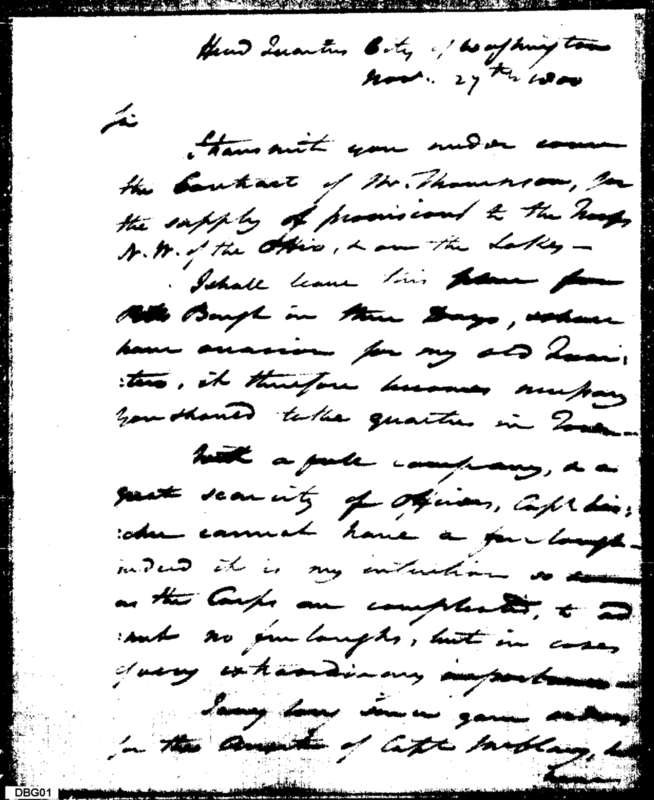 Head Quarters City of Washington
Nov. 27th 1800
Sir
I transmit you under cover
the Contract of Mr. Thomson, for
the supply of provisions to the Troops
N. W. of the Ohio, & on the Lakes—
I shall leave this place for
Pitts Burgh in three Days, & shall
have occasion for my old Quar:
:ters, it therefore becomes necessary
you should take quarters in Town—
With a full company, & a
great scarcity of Officers, Capt
cannot have a furlough—
indeed it is my intention so soon
as the Corps are completed, to ad
:mit no furloughs, but in cases
of very extraordinary importance—
I very long since gave orders
for the of Capt. McClary, he
have
DBG01